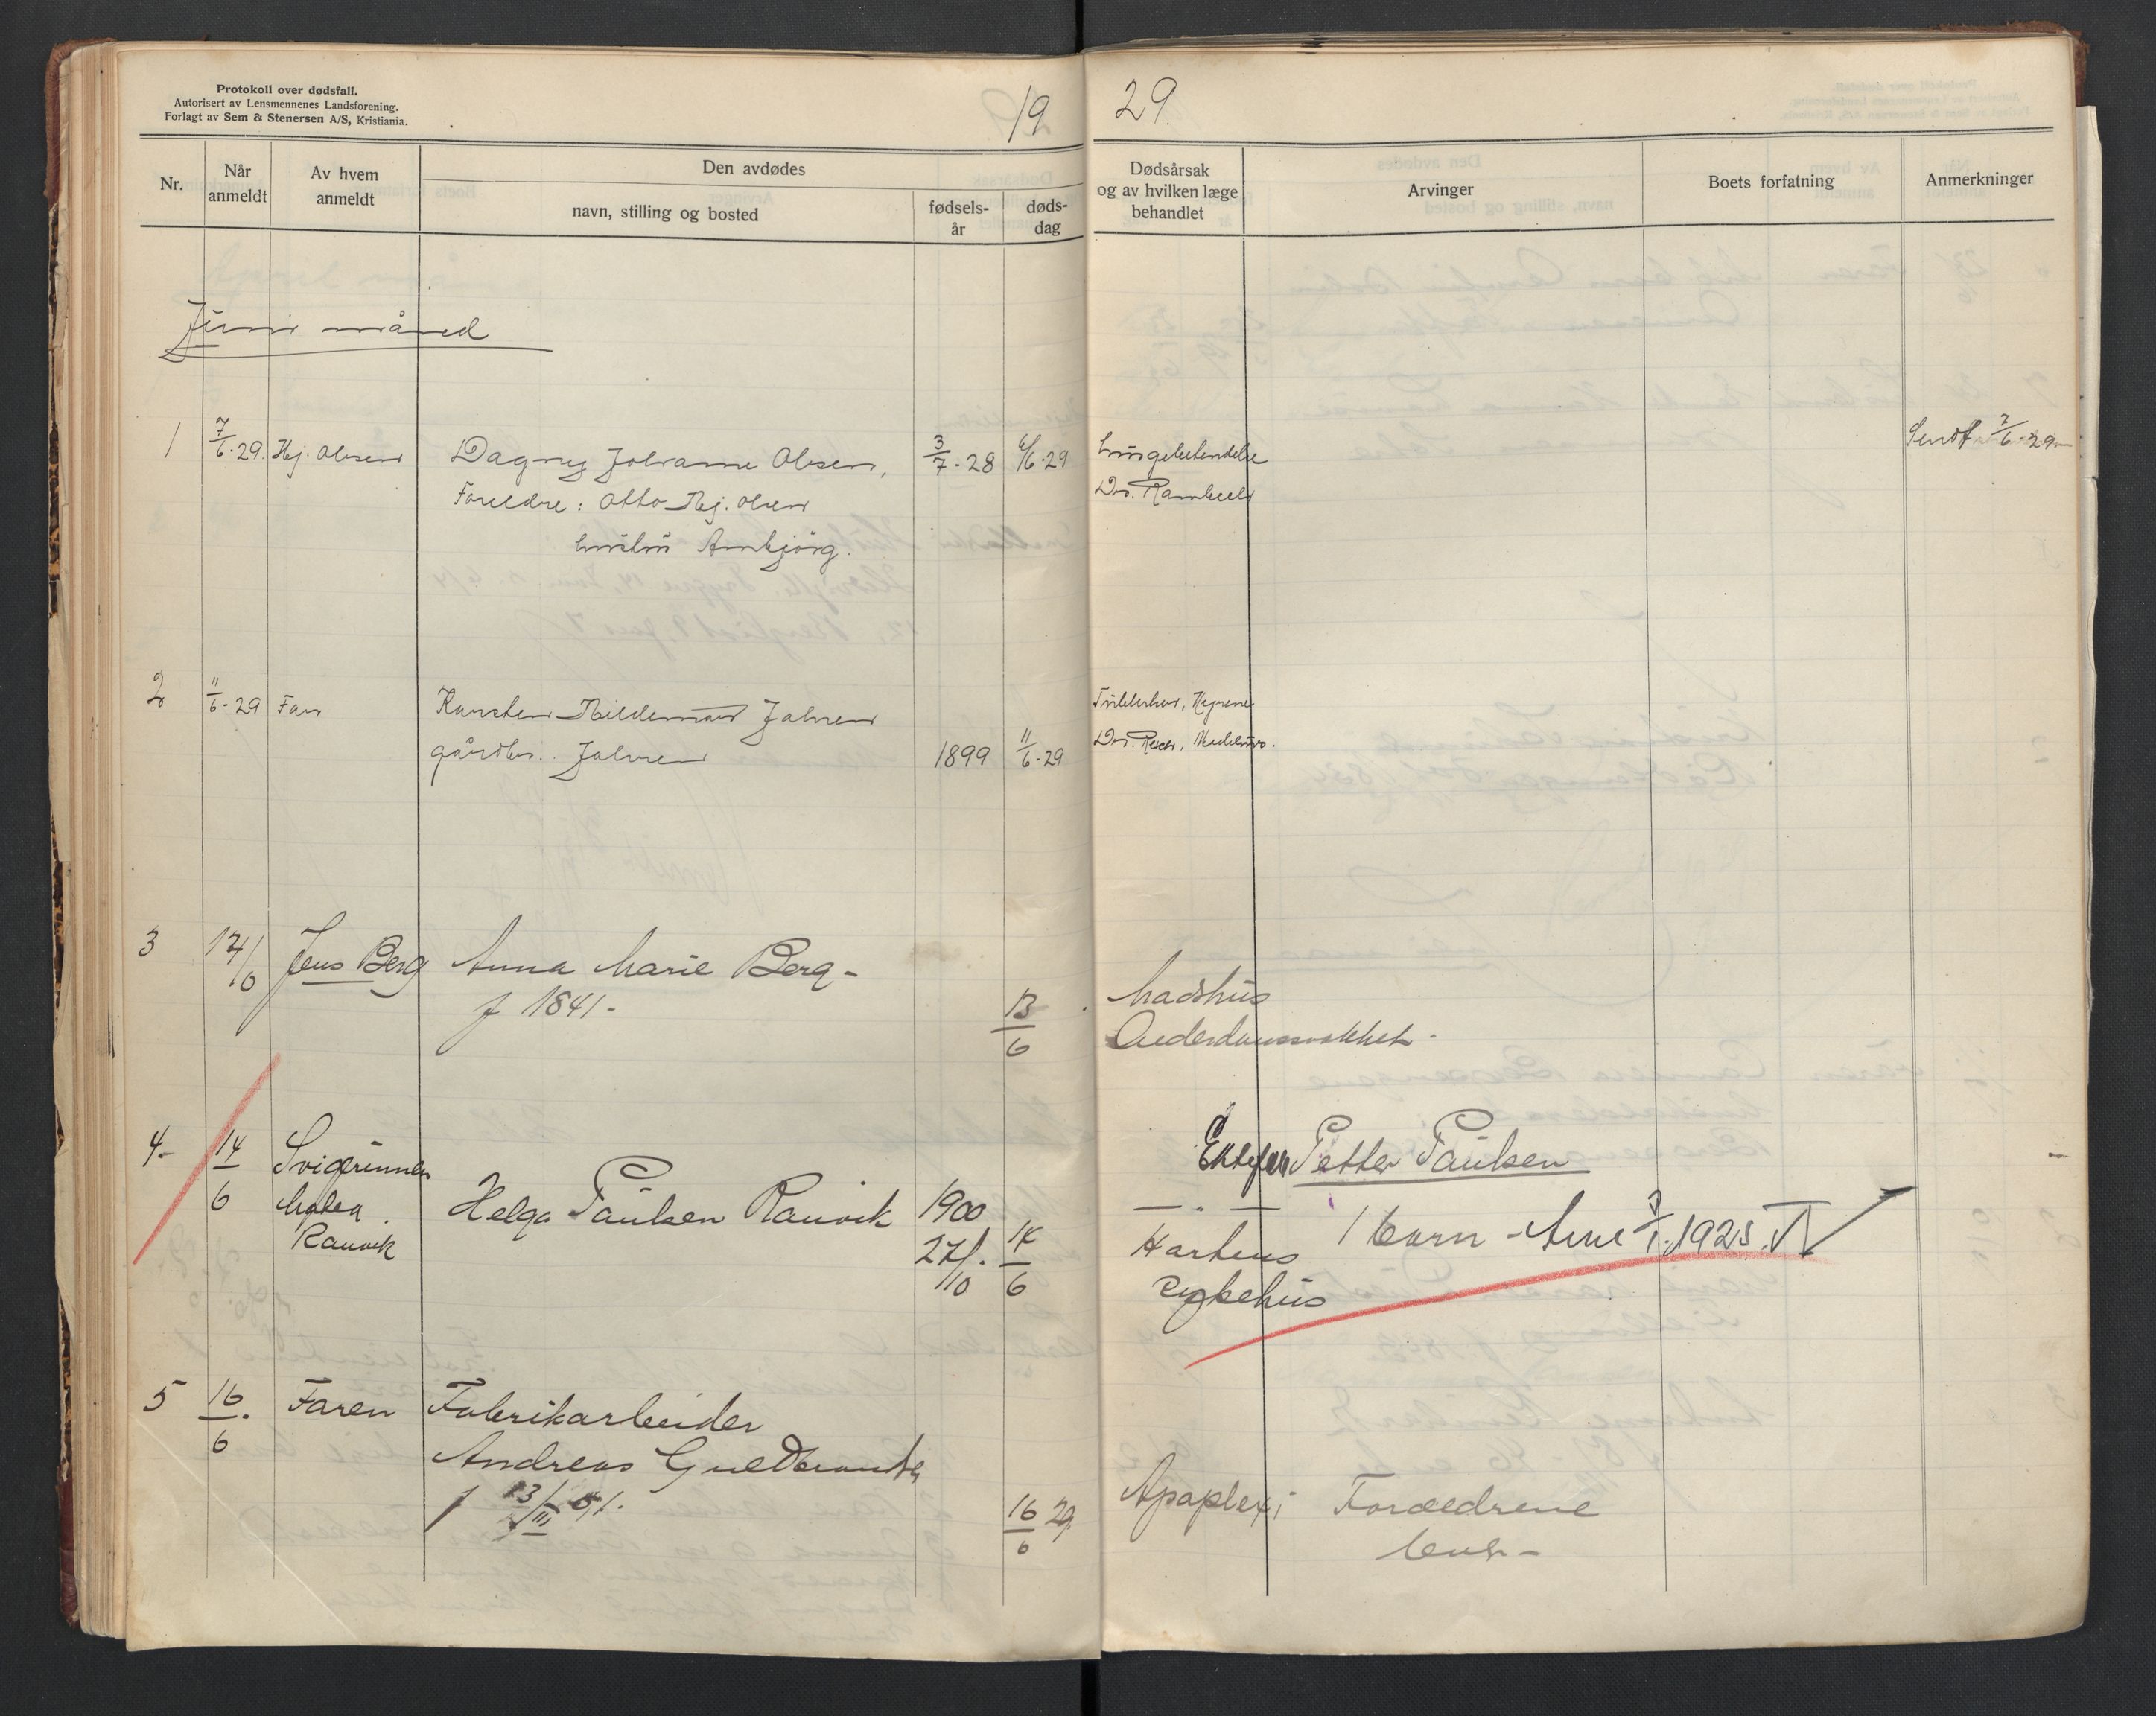 Protokoll over dødsfall.
Autorisert av Lensmennenes Landsforening.
Forlagt av Sem & Stenersen A/S, Kristiania.
19 29.
Nr.
Når anmeldt
Av hvem anmeldt
Den avdødes
navn, stilling og bosted
fødsels-år
døds-dag
Dødsårsak og av hvilken læge behandlet
Arvinger
Boets forfatning
Anmerkninger
Juni måned
1 7/6-29. Hj. Olsen Dagny Johanne Olsen, 3/7-28 6/6-29 Lungebetendelse Sendt 7/6-29
Foreldre: Otto Hj. Olsen Dr.
Annbjörg.
2 11/6-29 Far Karsten Hildemar Jahren
gårdbr. Jahren 1899 11/6-29 Dr.
3 14/6 Jens Berg Anna Marie Berg -
f 1841 - 13/6 Madshus
Alderdomssvakhet -
4- 14/6 Svigerinnen Ektefen Petter Paulsen
Helga Paulsen Rauvik 1900 — " —
Rauvik 27/10. 14/6 1 barn - Arne 1925.
sykehus
5 16/6. Faren Fabrikarbeider
Andreas
f 51. 16/6 29 Apoplexi Foreldrene